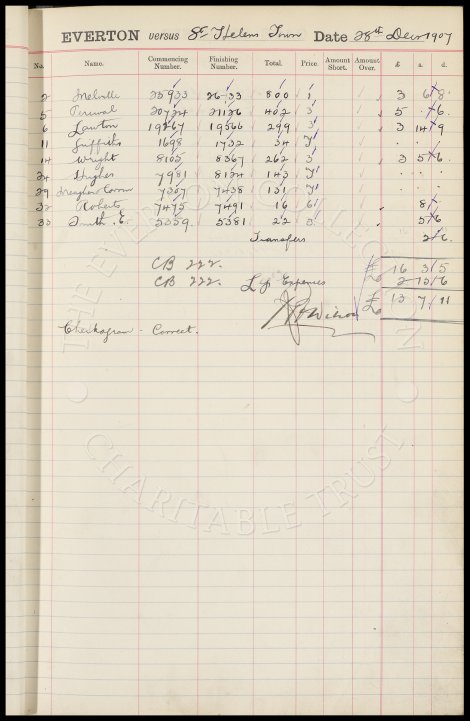 EVERTON versus St Helens Town Date 28th Decr 1907
No. Name. Commencing Number. Finishing Number. Total. Price. Amount Short. Amount Over. £ s. d.
2 Melville 25933 26733 800 1 3 6 8
5 Percival 20724 21126 402 3 5 6
6 Lawton 19267 19566 299 3 3 14 9
11 Griffiths 1698 1732 34
14 Wright 8105 8367 262 3 3 5 6
24 Hughes 7981 8124 143
29 7307 7438 131
32 Roberts 7475 7491 16 6 8
33 Smith E 5359 5381 22 3 5 6
Transfers 2 6
CB 222. £ 16 3 5
CB 222. Expenses 2 15 6
Wilson £ 13 7 11
Correct.
THE EVERTON COLLECTION
CHARITABLE TRUST